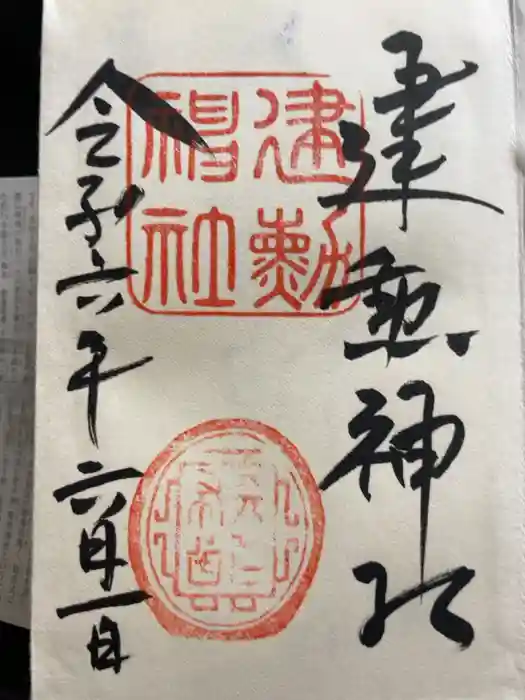 建勲神社
建勲
神社
令和六年六月一日